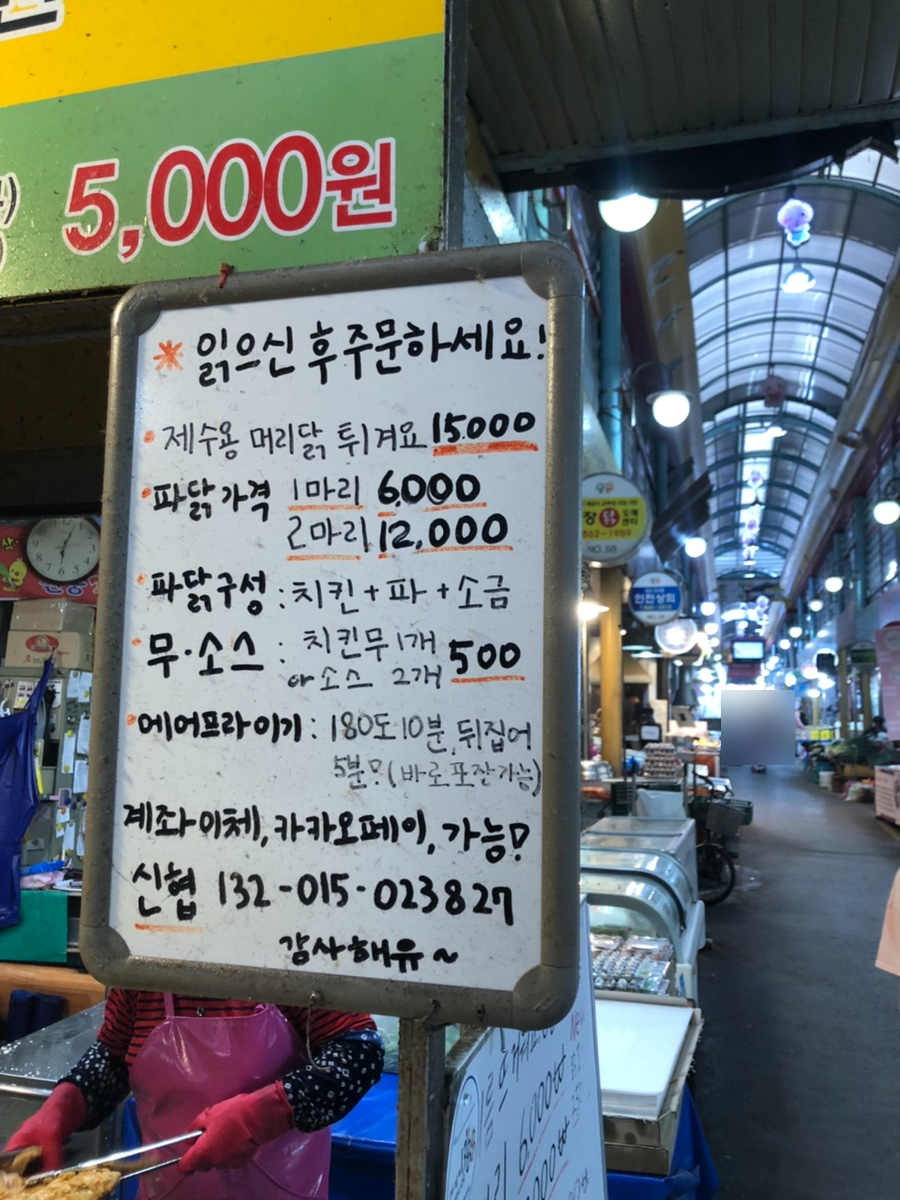 5,000원
※ 읽으신 후 주문하세요!
• 제수용 머리닭 튀겨요 15.000
• 파닭가격 1마리 6,000
2마리 12,000
• 파닭구성 : 치킨 + 파 + 소금
• 무·소스 : 치킨무 1개 500
아소스 2개
• 에어프라이기 : 180도 10분, 뒤집어
5분? (바로포장가능)
계좌이체, 카카오페이, 가능!
신협 132-015-023827
감사해유~
도매
센타
NO.50
인천상회
6,000원